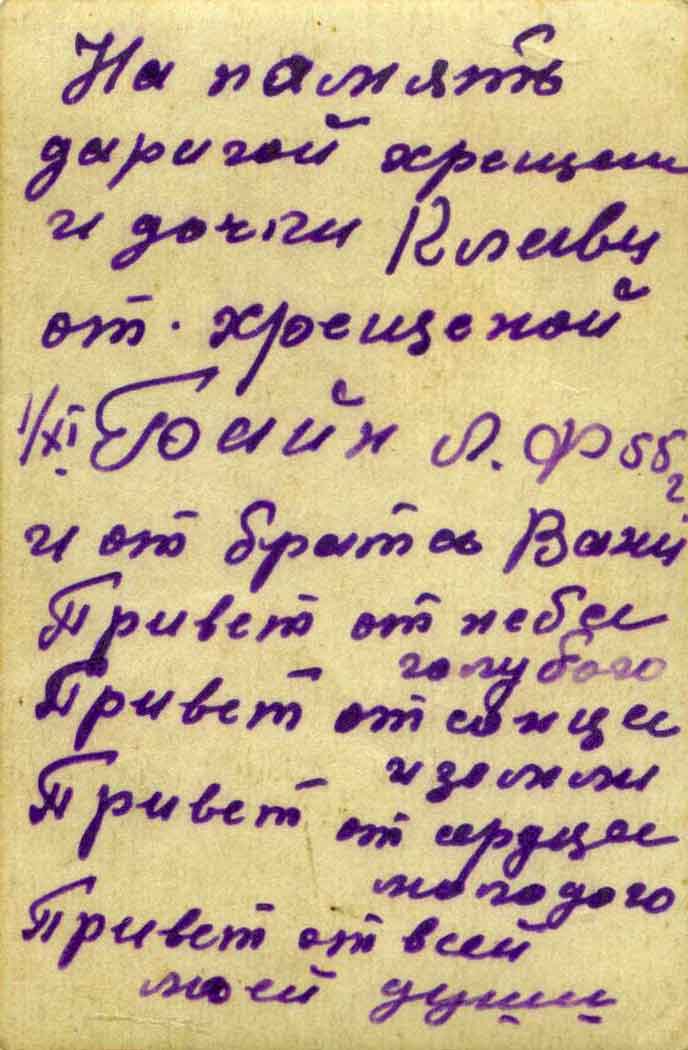 На память
даригой хрещени
и дочки Клавы
от. хрещеной
1/XI Гоайн Л. Ф 55 г
и от брата Вани
Привет от неба
голубого
Привет от сонца
и земли
Привет от сердца
молодого
Привет от всей
моей души